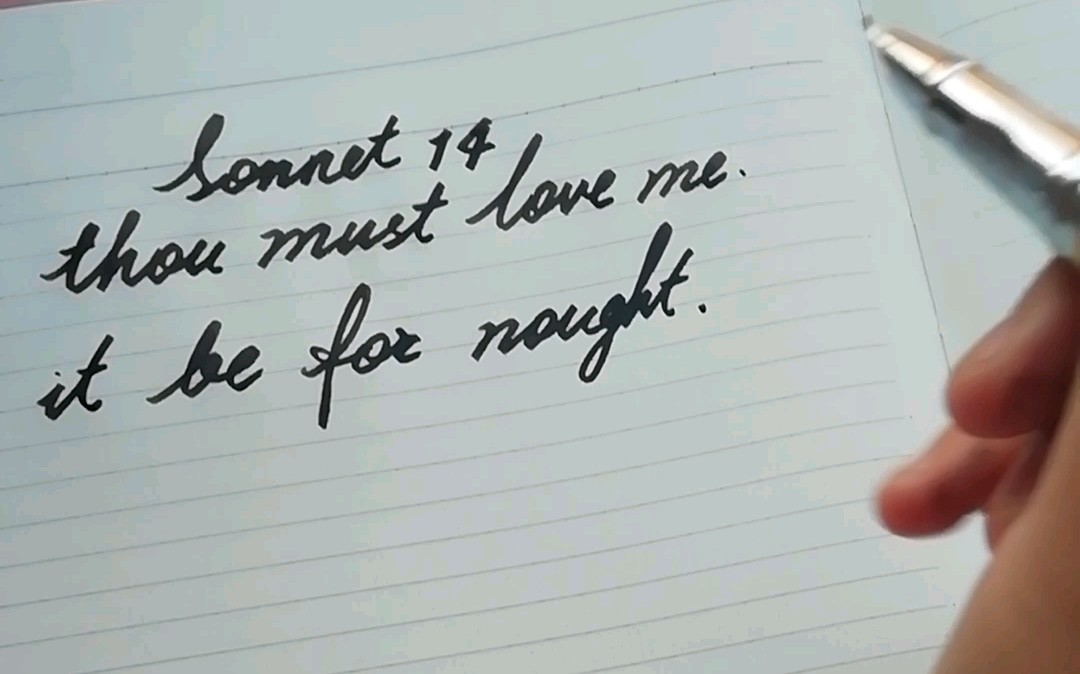 Sonnet 14
thou must love me.
it be for nought.